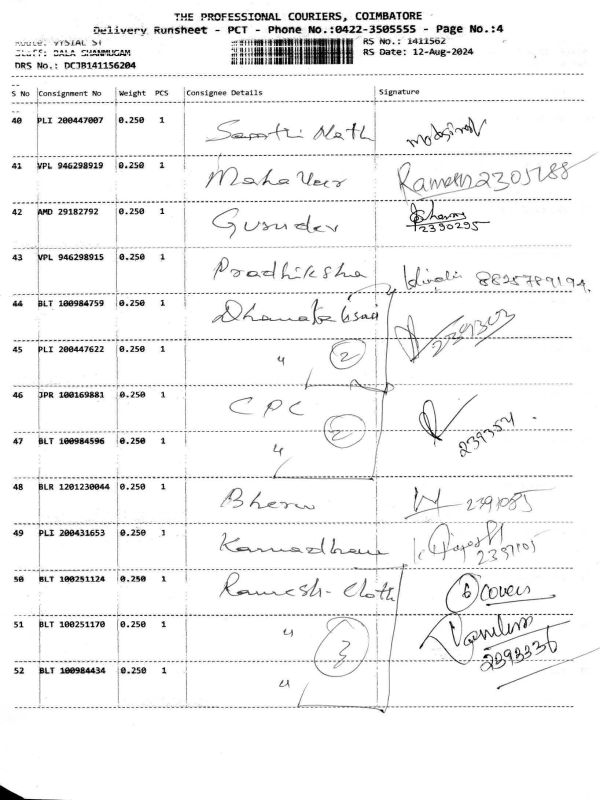 THE PROFESSIONAL COURIERS, COIMBATORE
Delivery Runsheet - PCT - Phone No.:0422-3505555 - Page No.:4
Route: VYSIAL ST
RS No.: 1411562
Staff: BALA SHANMUGAM
RS Date: 12-Aug-2024
DRS No.: DCJB141156204
S No Consignment No Weight PCS Consignee Details Signature
40 PLI 200447007 0.250 1
41 VPL 946298919 0.250 1 Mahaveer Ramesh 2305788
42 AMD 29182792 0.250 1 Gurudev 2390295
43 VPL 946298915 0.250 1 Pradhiksha 8825789194.
44 BLT 100984759 0.250 1
45 PLI 200447622 0.250 1 " 2
46 JPR 100169881 0.250 1 CPC
47 BLT 100984596 0.250 1 " 2 239354
48 BLR 1201230044 0.250 1 2391085
49 PLI 200431653 0.250 1
50 BLT 100251124 0.250 1 Ramesh-Cloth 6 covers
51 BLT 100251170 0.250 1 " 3
52 BLT 100984434 0.250 1 " 2393336